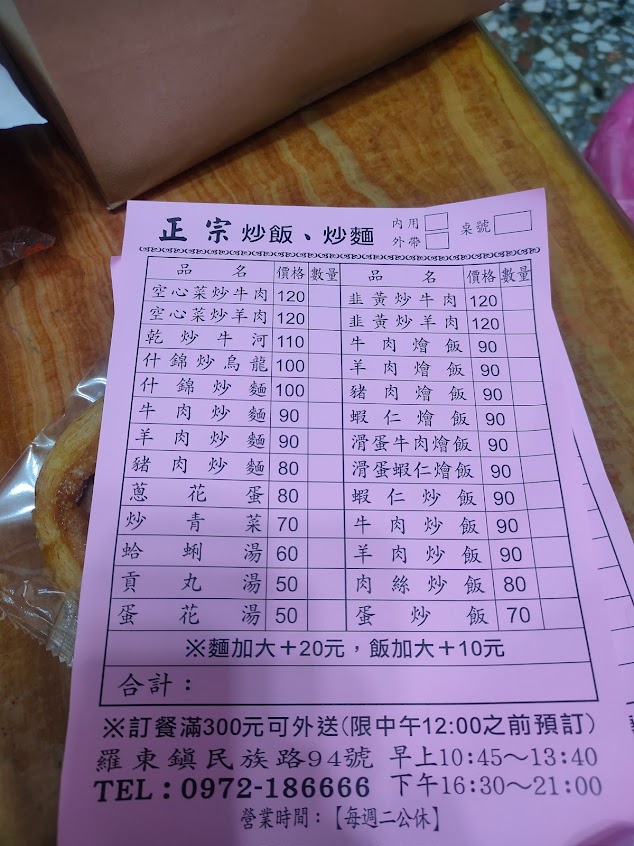 正宗炒飯、炒麵 內用 桌號
外帶
品名 價格 數量 品名 價格 數量
空心菜炒牛肉 120 韭黃炒牛肉 120
空心菜炒羊肉 120 韭黃炒羊肉 120
乾炒牛河 110 牛肉燴飯 90
什錦炒烏龍 100 羊肉燴飯 90
什錦炒麵 100 豬肉燴飯 90
牛肉炒麵 90 蝦仁燴飯 90
羊肉炒麵 90 滑蛋牛肉燴飯 90
豬肉炒麵 80 滑蛋蝦仁燴飯 90
蔥花蛋 80 蝦仁炒飯 90
炒青菜 70 牛肉炒飯 90
蛤蜊湯 60 羊肉炒飯 90
貢丸湯 50 肉絲炒飯 80
蛋花湯 50 蛋炒飯 70
※麵加大＋20元，飯加大＋10元
合計：
※訂餐滿300元可外送(限中午12:00之前預訂)
羅東鎮民族路94號 早上10:45～13:40
TEL：0972-186666 下午16:30～21:00
營業時間：【每週二公休】